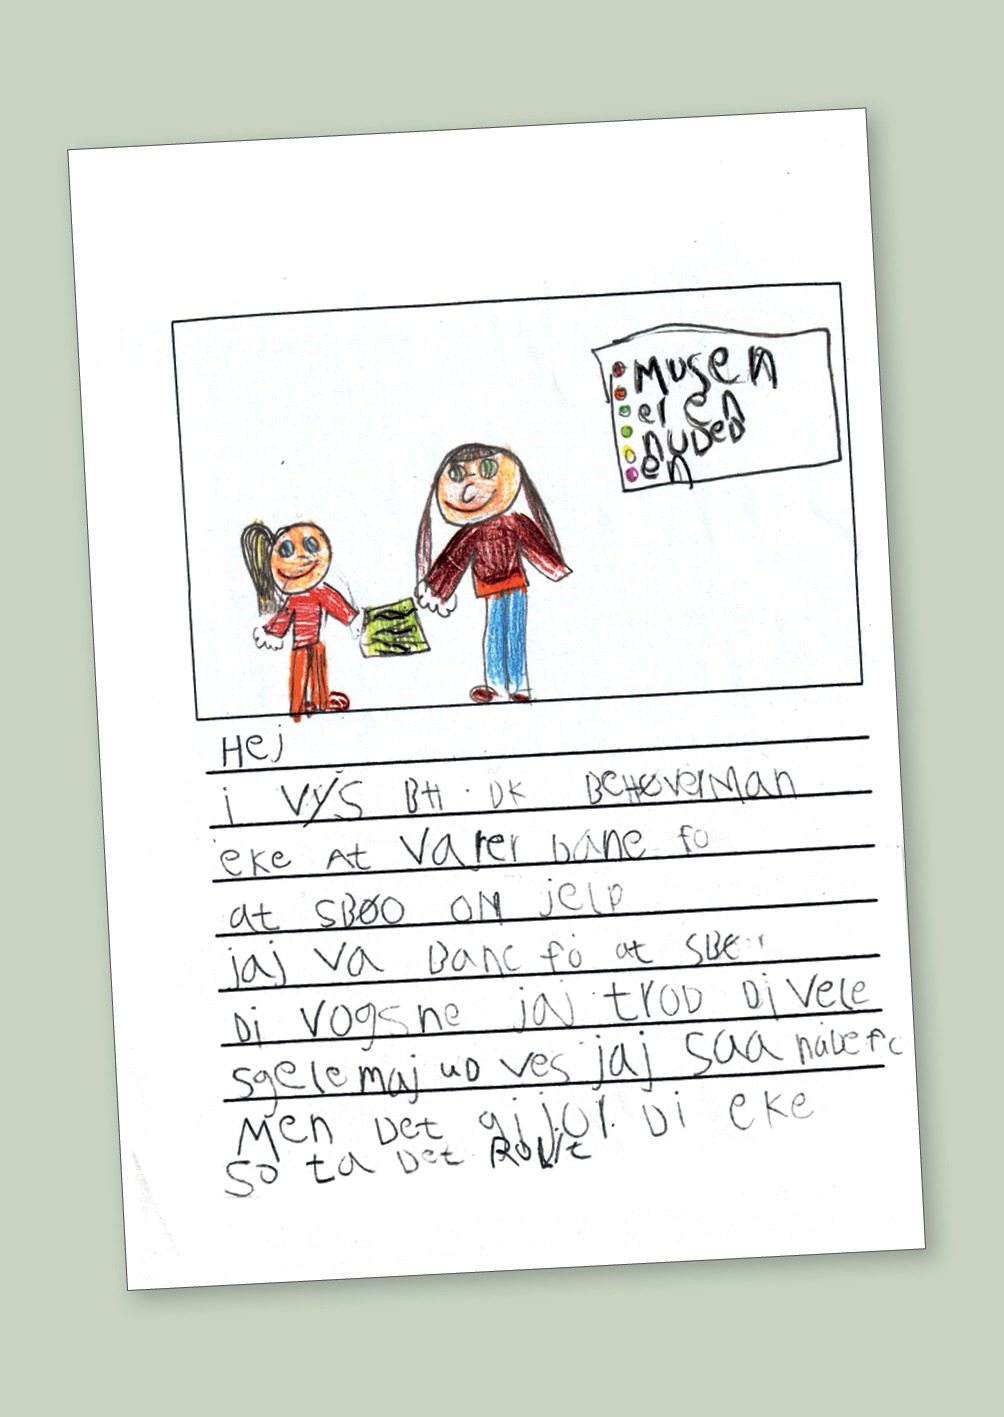 Musen
er en
nuded
en
Hej
i vys BH. DK BeHøverMan
eke At Varer bane fo
at SBØO OM jelp
jaj va Banc fo at SBØ
Di Vogsne jaj troD Di vele
Sgele maj uD ves jaj saa
Men Det gijor Di eke
So ta Det Rolit